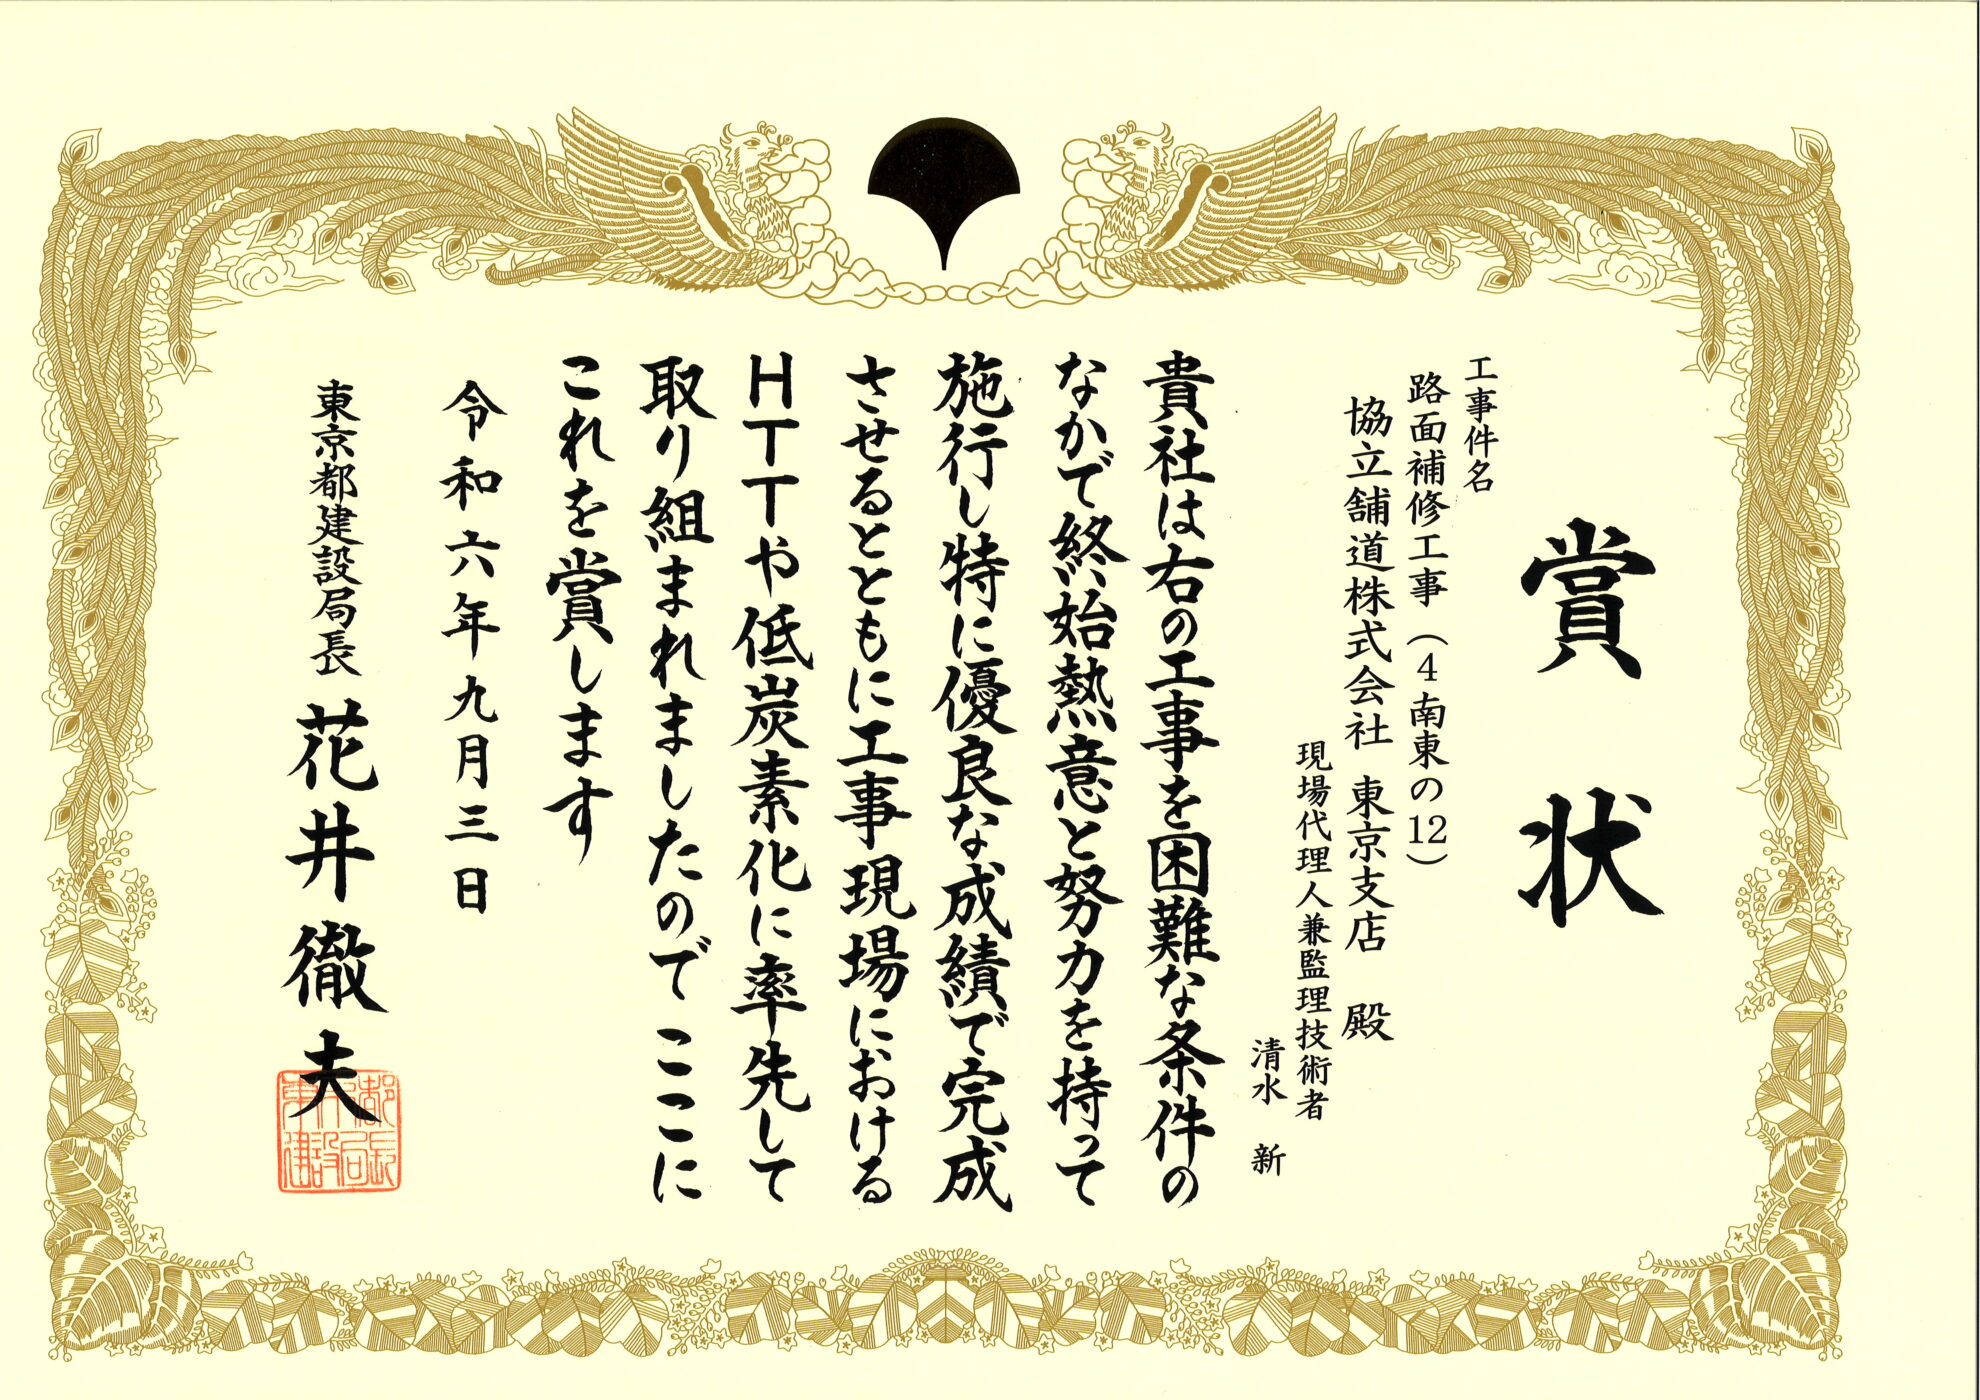 賞状
工事件名
路面補修工事（4南東の12）
協立舗道株式会社 東京支店 殿
現場代理人兼監理技術者
清水 新
貴社は右の工事を困難な条件の
なかで終始熱意と努力を持って
施行し特に優良な成績で完成
させるとともに工事現場における
HTTや低炭素化に率先して
取り組まれましたので ここに
これを賞します
令和六年九月三日
東京都建設局長 花井徹夫